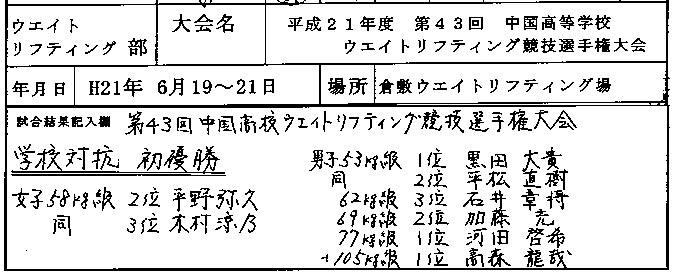 ウエイト
リフティング 部
大会名
平成21年度 第43回 中国高等学校
ウエイトリフティング競技選手権大会
年月日 H21年 6月19～21日 場所 倉敷ウエイトリフティング場
試合結果記入欄 第43回中国高校ウエイトリフティング競技選手権大会
学校対抗 初優勝
女子58kg級 2位 平野弥久
同 3位 木村涼乃
男子53kg級 1位 黒田 大貴
同 2位 平松 直樹
62kg級 3位 石井 章将
69kg級 2位 加藤 充
77kg級 1位 河田 啓希
+105kg級 1位 高森 龍哉